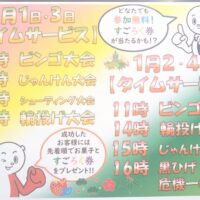 1月1日・3日
イムサービス】
時 ビンゴ大会
時 じゃんけん大会
時 シューティング大会
時 輪投げ大会
どなたでも
参加無料!
すごろく券
が当たるかも!?
1月2・4
【タイムサー
11時 ビンゴ
14時 輪投げ
15時 じゃんけ
16時 黒ひげ
危機一
成功した
お客様には
先着順でお菓子と
すごろく券
をプレゼント!!